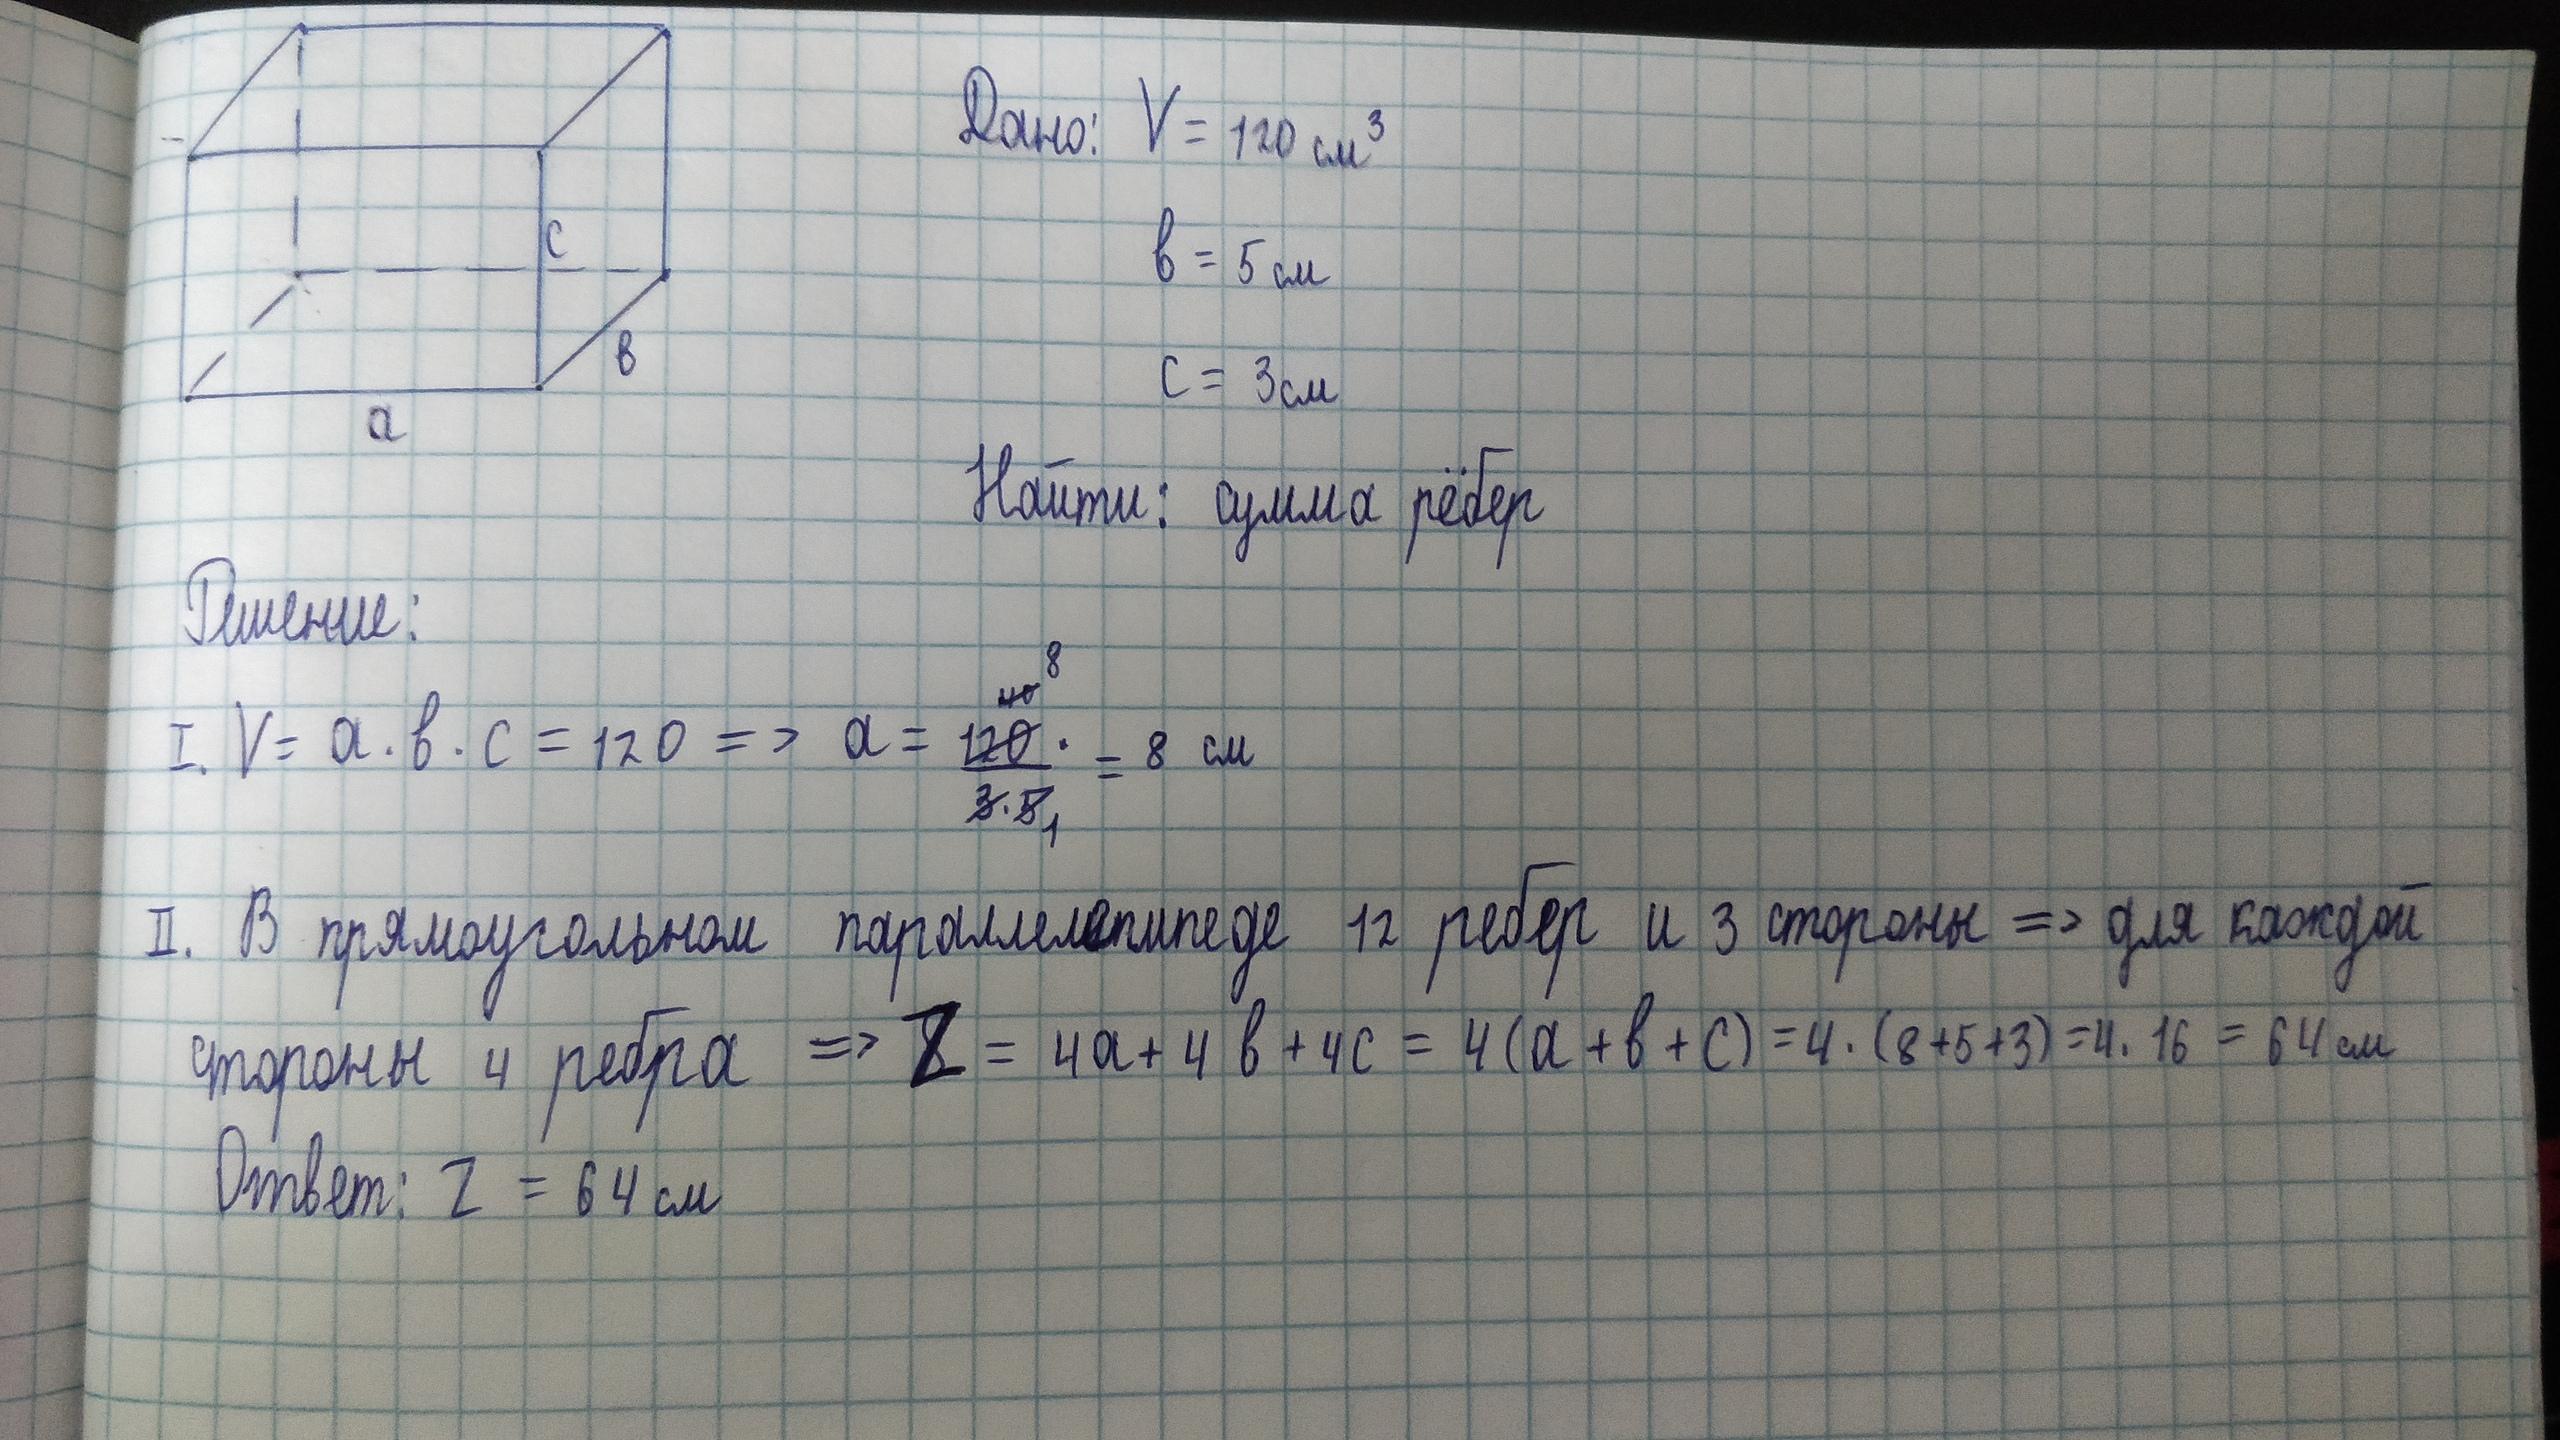 Дано: V = 120 см³
в = 5 см
с = 3 см
с
в
а
Найти: сумма рёбер
Решение:
I. V = а · в · с = 120 => а = 120 / 3·5 = 8 см
40 8
1
II. В прямоугольном параллелепипеде 12 ребер и 3 стороны => для каждой
стороны 4 ребра => Z = 4а + 4в + 4с = 4(а + в + с) = 4 · (8+5+3) = 4 · 16 = 64 см
Ответ: Z = 64 см